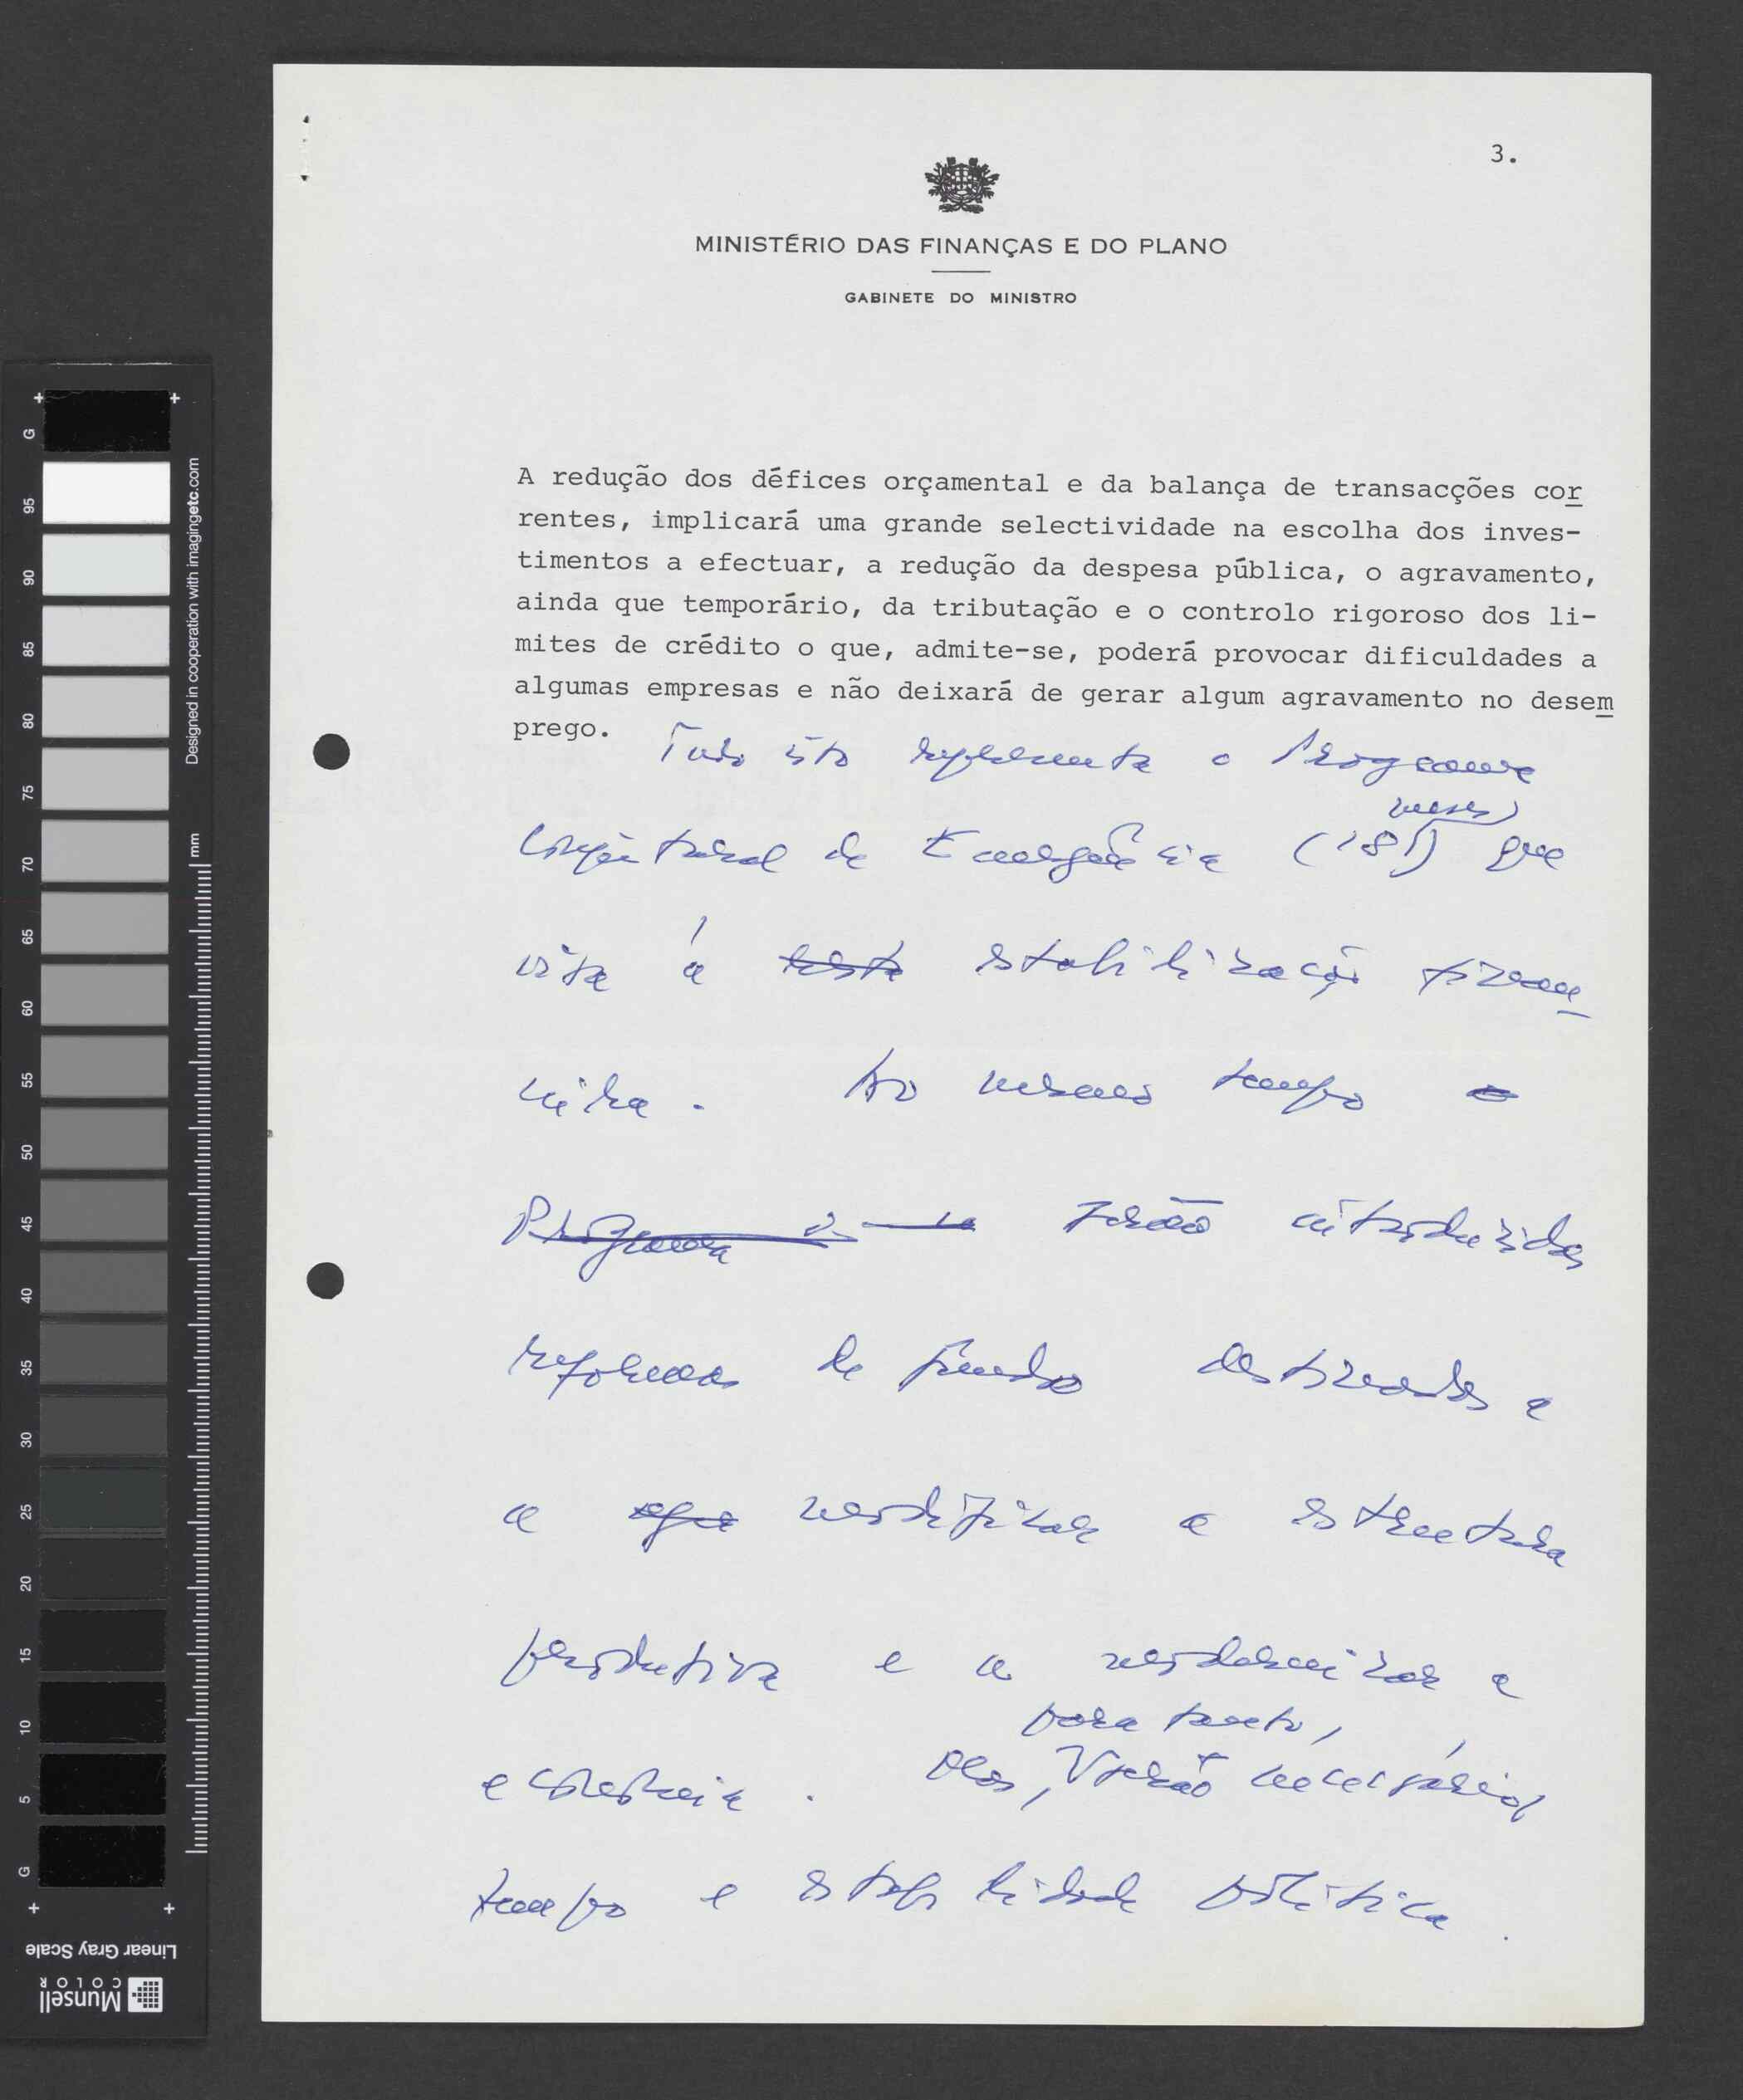 3.
MINISTÉRIO DAS FINANÇAS E DO PLANO
GABINETE DO MINISTRO
A redução dos défices orçamental e da balança de transacções cor
rentes, implicará uma grande selectividade na escolha dos inves-
timentos a efectuar, a redução da despesa pública, o agravamento,
ainda que temporário, da tributação e o controlo rigoroso dos li-
mites de crédito o que, admite-se, poderá provocar dificuldades a
algumas empresas e não deixará de gerar algum agravamento no desem
prego. Tudo isto representa o Programa
meses)
Conjuntural de Emergência (18 que
visa à estabilização finan
ceira. Ao mesmo tempo o
Programa serão introduzidas
reformas de fundo destinadas a
a modificar a estrutura
produtiva e a modernizar a
para tanto,
economia. Mas, serão necessários
tempo e estabilidade política.
G
95
90
85
80
75
70
65
60
55
50
45
40
35
30
25
20
15
10
5
G
Designed in cooperation with imagingetc.com
mm
Linear Gray Scale
Munsell
COLOR